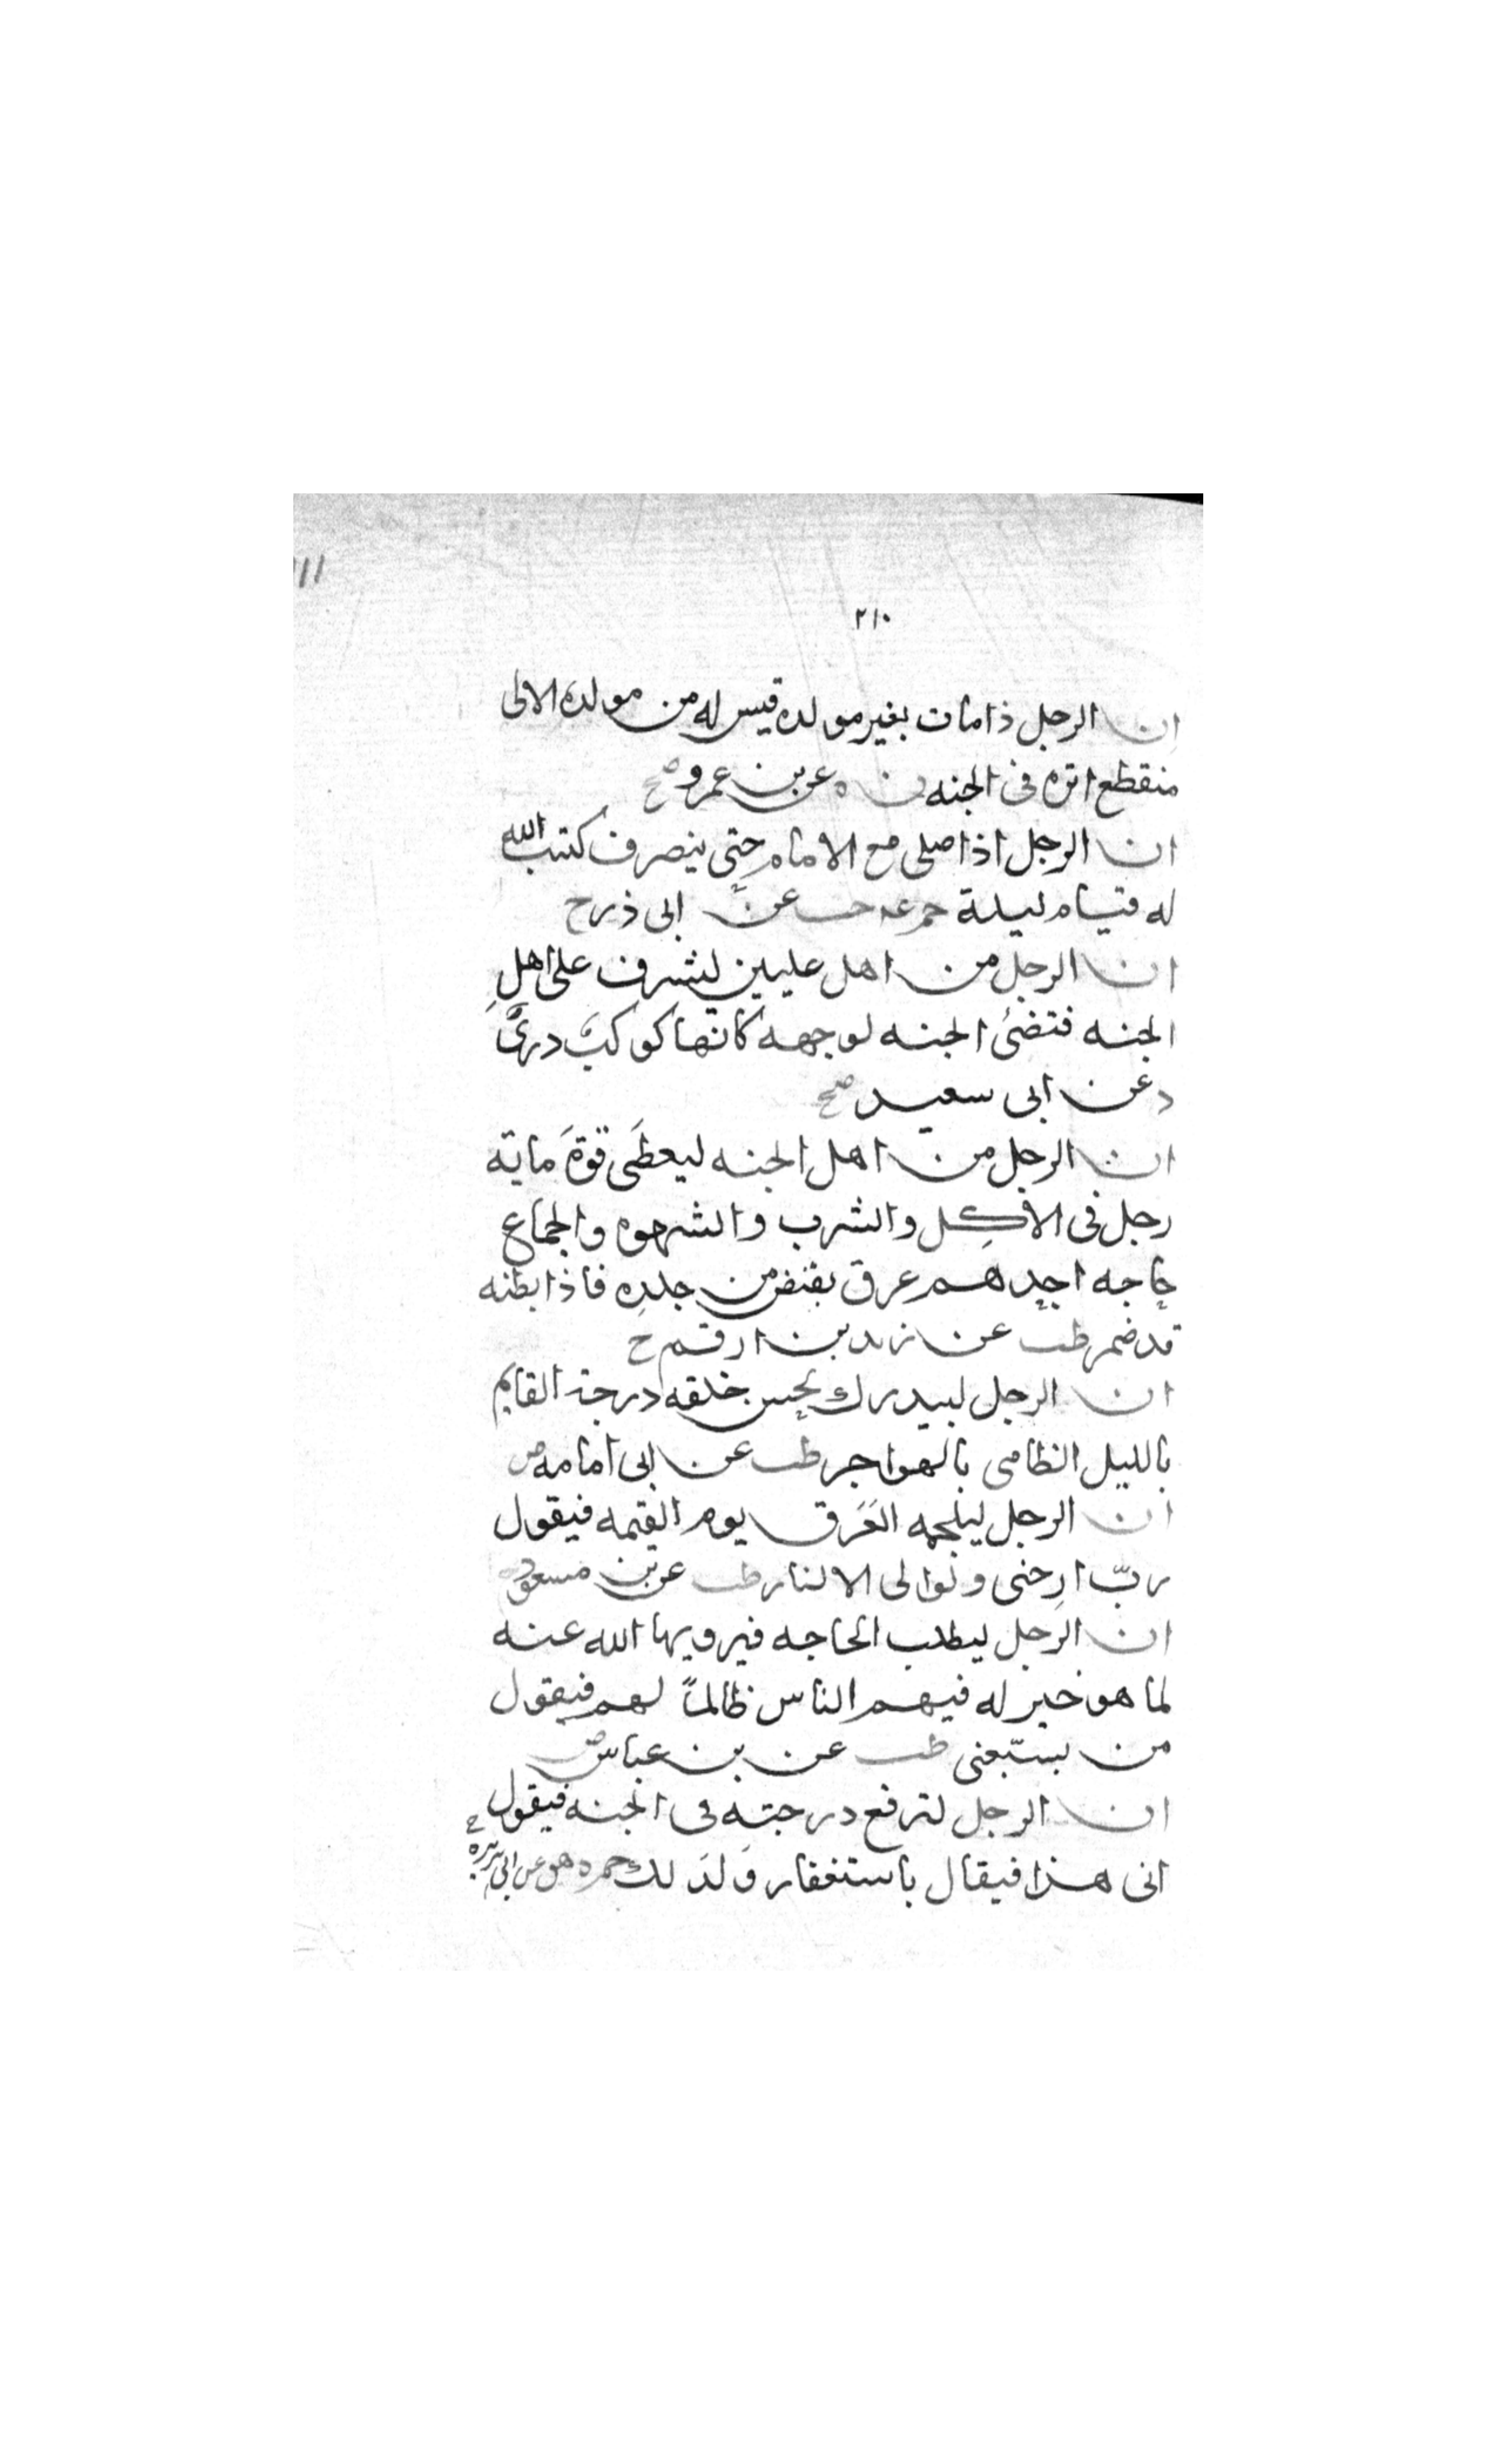 ١١١
٢١٠
ان الرجل ذا مات بغير مولده قيس له من مولده الالى
منقطع اثره فى الجنه ن ه عن بن عمرو صح
ان الرجل اذا صلى مع الامام حتى ينصرف كتب الله
له قيام ليلة حم عه حب عن ابى ذر ح
ان الرجل من اهل عليين ليشرف على اهلِ
الجنه فتضئ الجنه لوجهه كانها كوكبٌ درىٌّ
د عن ابى سعيد صح
ان الرجل من اهل الجنه ليعطَى قوّةَ ماية
رجل فى الاكِل والشرب والشهوه والجماع
حاجه احدهم عرق يفيض من جلدِه فاذا بطنه
قد ضمر طب عن زيد بن ارقم ح
ان الرجل ليدرك بحسن خلقه درجة القايم
بالليل الظامى بالهواجر طب عن ابى امامه ض
ان الرجل ليلجمه العَرَق يوم القيمه فيقول
ربّ ارِحنى ولو الى الا لنار طب عن بن مسعود
ان الرَجل ليطلب الحاجه فيرويها الله عنه
لما هو خير له فيهم الناس ظالماً لهم فيقول
من يستّبعنى طب عن بن عباس ض
ان الرجل لترفع درجته فى الجنه فيقول
انى هذا فيقال باستغفار وَلدَ لك حم ه هق عن ابى هريره ح